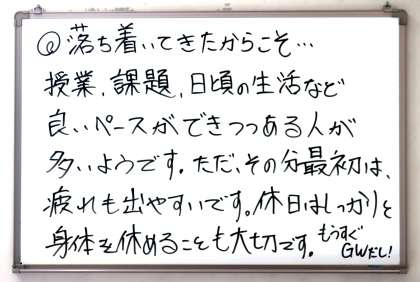 ◎落ち着いてきたからこそ…
授業、課題、日頃の生活など
良いペースができつつある人が
多いようです。ただ、その分最初は、
疲れも出やすいです。休日はしっかりと
身体を休めることも大切です。もうすぐ
GWだし!